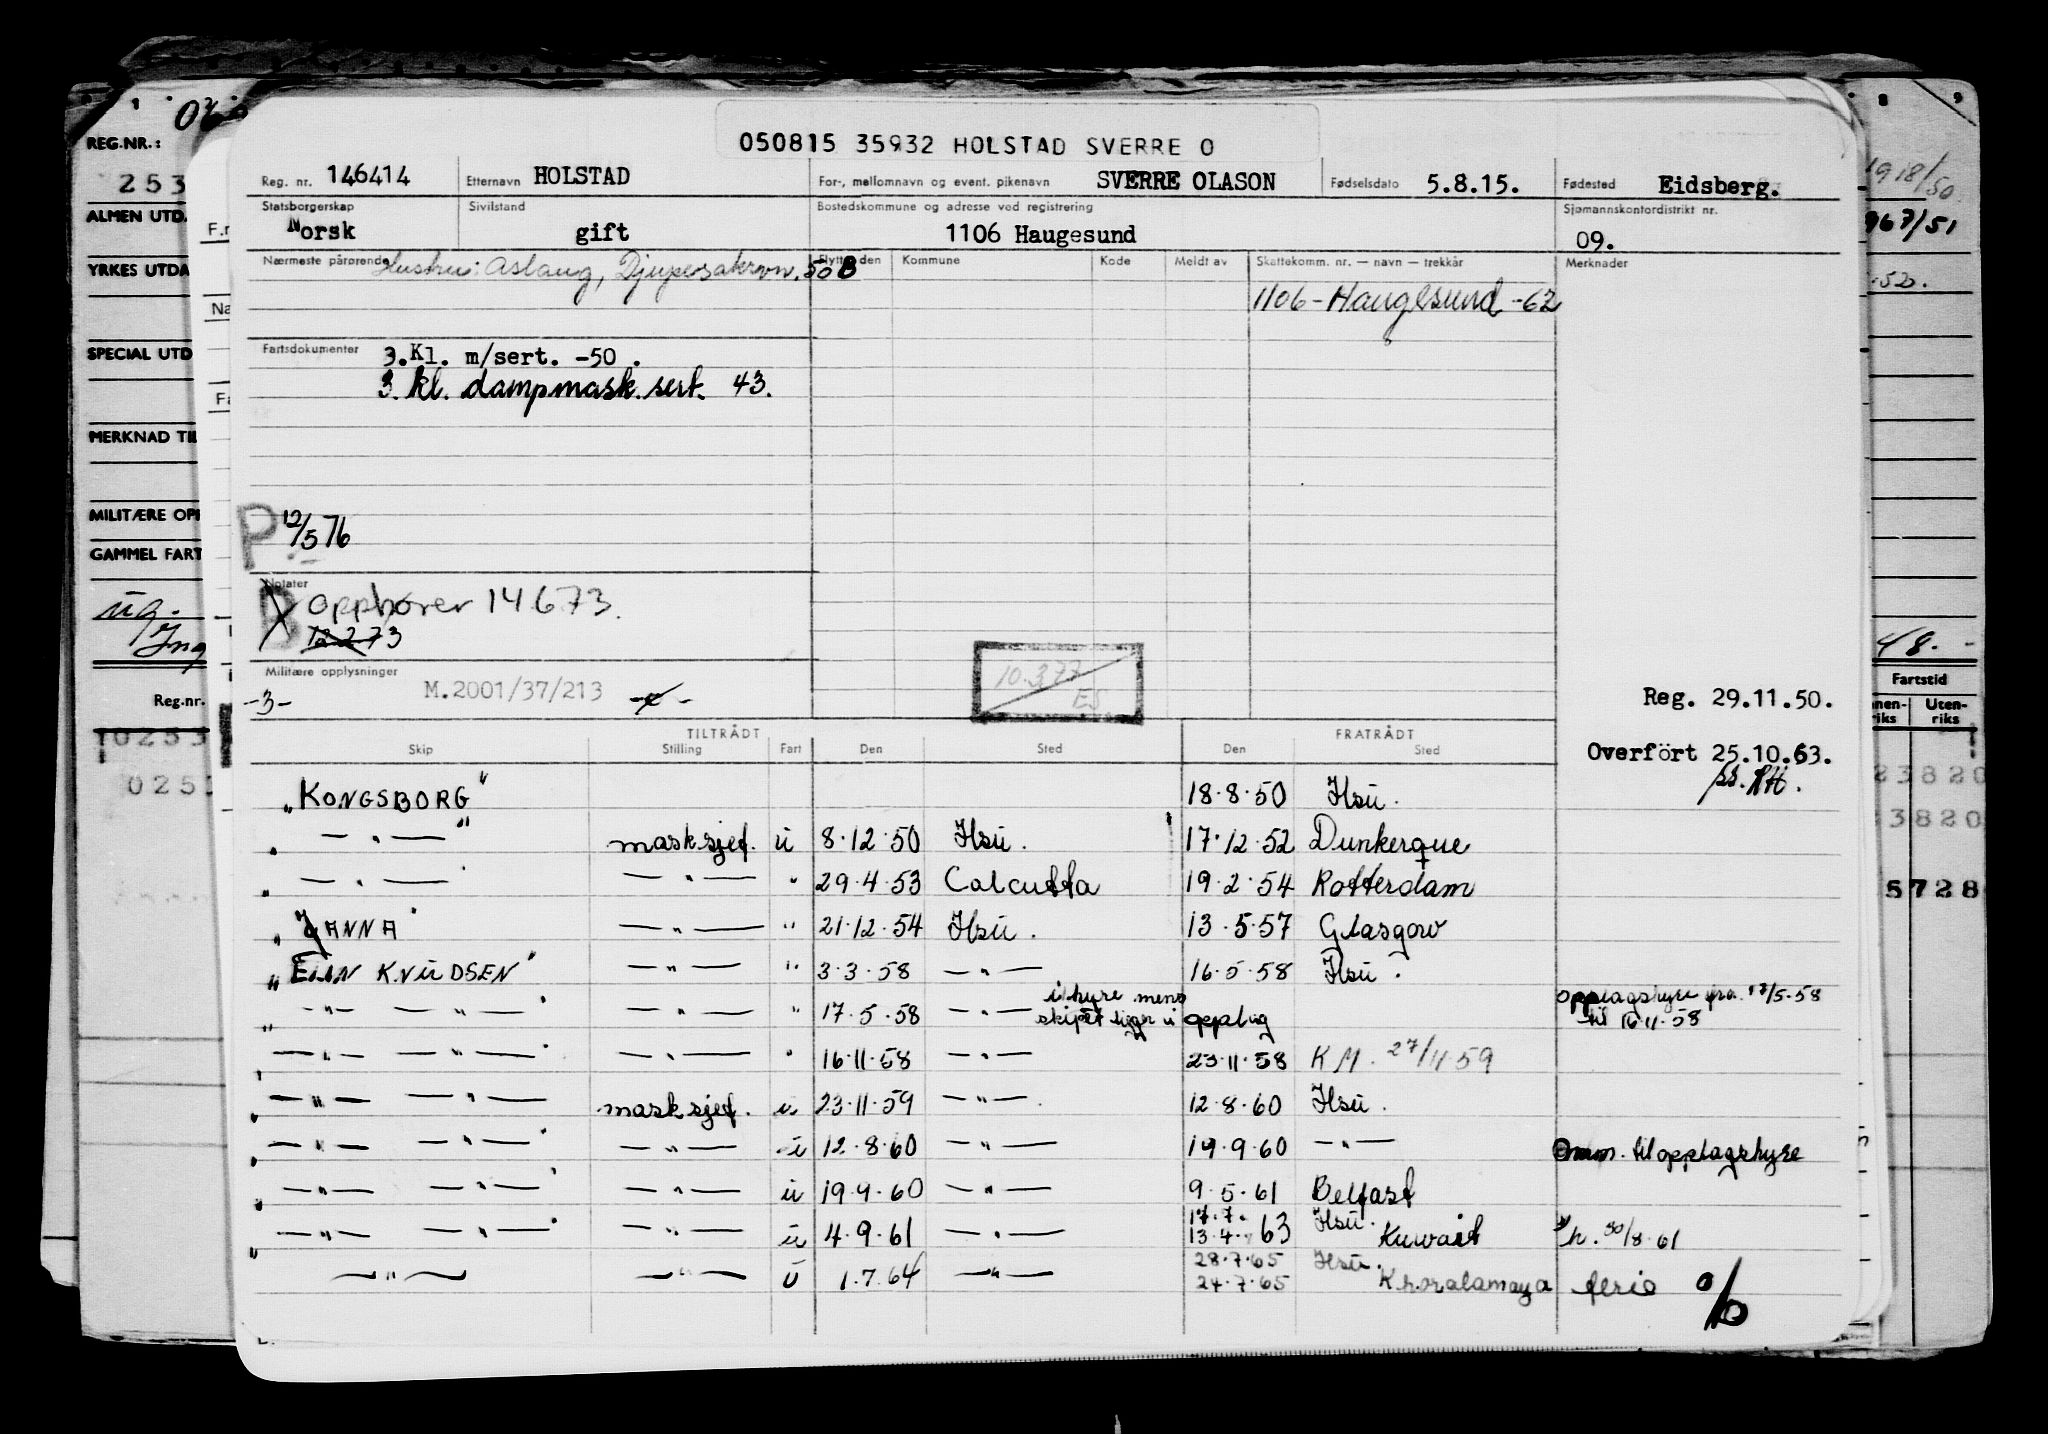 050815 35932 HOLSTAD SVERRE O
Reg. nr. 146414 Etternavn HOLSTAD For-, mellomnavn og event. pikenavn SVERRE OLASON Fødselsdato 5.8.15. Fødested Eidsberg.
Statsborgerskap Norsk Sivilstand gift Bostedskommune og adresse ved registrering 1106 Haugesund Sjømannskontordistrikt nr. 09.
Nærmeste pårørende Hustru: Aslaug, 50 B Flyttet den Kommune Kode Meldt av Skattekomm. nr. — navn — trekkår Merknader
1106 - Haugesund -62
Fartsdokumenter 3.Kl. m/sert. -50 .
3. kl. dampmask. sert. 43.
P 12/5 76
Notater
B Opphører 14.6.73.
12.2.73
Militære opplysninger M.2001/37/213
-3-
10.3.77
ES
Reg. 29.11.50.
Overført 25.10.63.
TILTRÅDT FRATRÅDT
Skip Stilling Fart Den Sted Den Sted
"KONGSBORG" 18.8.50 Hsu.
" — " — " masksjef. u 8.12.50 Hsu. 17.12.52 Dunkerque
" — " — " — " — " 29.4.53 Calcutta 19.2.54 Rotterdam
"JANNA" — " — " 21.12.54 Hsu. 13.5.57 Glasgow
"ELIN KNUDSEN" — " — " 3.3.58 — " — 16.5.58 Hsu.
" — " — — " — " — " — " 17.5.58 — " — i hyre mens skipet ligger i opplag Opplagshyre fra 17/5-58 til 16.11.58
" — " — — " — " — " — " 16.11.58 — " — 23.11.58 K M. 27/11.59
" — " — — " — " masksjef. u 23.11.59 — " — 12.8.60 Hsu.
" — " — — " — " — " — u 12.8.60 — " — 19.9.60 — " — til opplagshyre
" — " — — " — " — " — u 19.9.60 — " — 9.5.61 Belfast
" — " — — " — " — " — u 4.9.61 — " — 17.7. 13.4. 63 Hsu. Kuwait h. 30/8.61
" — " — — " — u 1.7.64 — " — 28.7.65 Hsu.
24.7.65 Khoralamaya ferie
REG.NR.:
253
ALMEN UTD.
YRKES UTDA
SPECIAL UTD
MERKNAD TIL
MILITÆRE OPP
GAMMEL FART
Reg.nr.
10253
025
1918/50
967/51
48. -
Fartstid
Uten-
riks
23820
3820
5728